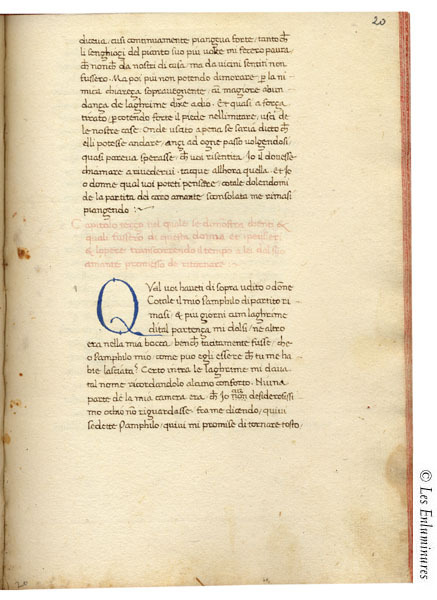 20
diceua, cusi continuamente piangeua forte, tanto ch̄
li senghioçi del pianto suo piu uolte mi fecero paura
ch̄ non ch̄ da nostri di casa, ma da uicini sentiti non
fussero. Ma poi piu non potendo dimorare, p̱ la ni
mica chiareça soprauegnente, cū magiore abun
dança de laghrime dixe adio. Et quasi a força
tirato, p̱cotendo forte il piede nellimitare, usci de
le nostre case. Onde uscito apena se saria dicto ch̄
elli potesse andare, ançi ad ogne passo uolgendosi
quasi pareua sperasse ch̄ uoi risentita, Io il douesse
chiamare a riuedermi. tacque allhora quella. Et Io
o donne qual uoi poteti pensere, cotale dolendomi
de la partita del caro amante sconsolata me rimasi
piangendo
Capitolo terço nel quale se dimostra
quali fussero di questa donna et pensieri
& lopere transcorrendo il tempo a lei dal suo
amante promesso di ritornare
Qval uoi haueti di sopra udito o dōne
Cotale il mio Pamphilo dipartito ri
masi & piu giorni cum laghrime
di tal partença mi dolsi, ne altro
era nella mia bocca, bench̄ tacitamente fusse, che
o Pamphilo mio come puo egli essere ch̄ tu me ha
bie lasciata? Certo intra le laghrime mi daua
tal nome ricordandolo alcuno conforto. Niuna
parte de la mia camera era ch̄ Io non desiderosissi
mo ochio nō riguardasse. fra me dicendo, quiui
sedette Pamphilo, quiui mi promise di tornare tosto,
20
© Les Enluminures